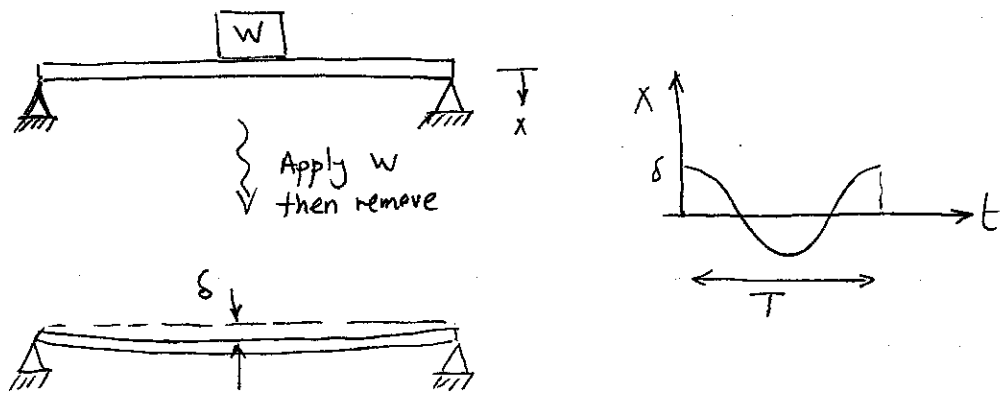 W
x
Apply W
then remove
δ
X
δ
t
T